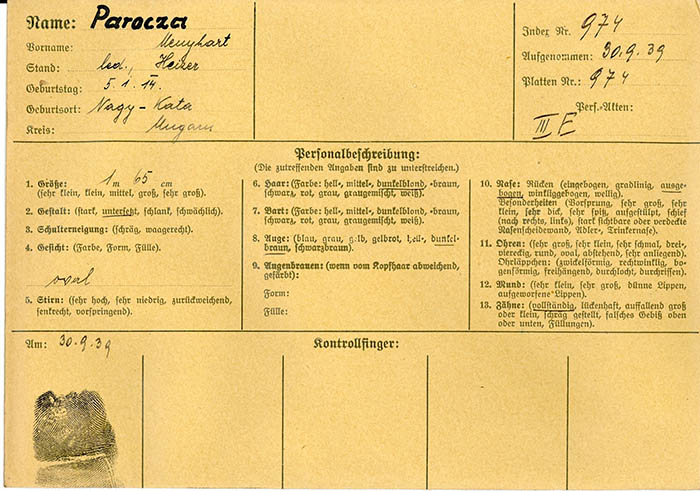 Name: Parocza
Vorname: Menyhart
Stand: led., Heizer
Geburtstag: 5. 1. 14.
Geburtsort: Nagy-Kata
Kreis: Ungarn
Index Nr. 974
Aufgenommen: 30.9.39
Platten Nr.: 974
Pers.-Akten:
III E
Personalbeschreibung:
(Die zutreffenden Angaben sind zu unterstreichen.)
1. Größe: 1 m 65 cm
(sehr klein, klein, mittel, groß, sehr groß).
2. Gestalt: (stark, untersetzt, schlank, schwächlich).
3. Schulterneigung: (schräg, waagerecht).
4. Gesicht: (Farbe, Form, Fülle).
oval
5. Stirn: (sehr hoch, sehr niedrig, zurückweichend,
senkrecht, vorspringend).
6. Haar: (Farbe: hell-, mittel-, dunkelblond, -braun,
schwarz, rot, grau, graugemischt, weiß).
7. Bart: (Farbe: hell-, mittel-, dunkelblond, -braun,
schwarz, rot, grau, graugemischt, weiß).
8. Auge: (blau, grau, gelb, gelbrot, hell-, dunkel-
braun, schwarzbraun).
9. Augenbrauen: (wenn vom Kopfhaar abweichend,
gefärbt):
Form:
Fülle:
10. Nase: Rücken (eingebogen, gradlinig, ausge-
bogen, winkliggebogen, wellig).
Besonderheiten (Vorsprung, sehr groß, sehr
klein, sehr dick, sehr spitz, aufgestülpt, schief
(nach rechts, links), stark sichtbare oder verdeckte
Nasenscheidewand, Adler-, Trinkernase).
11. Ohren: (sehr groß, sehr klein, sehr schmal, drei-,
viereckig, rund, oval, abstehend, sehr anliegend).
Ohrläppchen: (zwickelförmig, rechtwinklig, bo-
genförmig, freihängend, durchlocht, durchrissen).
12. Mund: (sehr klein, sehr groß, dünne Lippen,
aufgeworfene Lippen).
13. Zähne: (vollständig, lückenhaft, auffallend groß
oder klein, schräg gestellt, falsches Gebiß oben
oder unten, Füllungen).
Am: 30.9.39
Kontrollfinger: